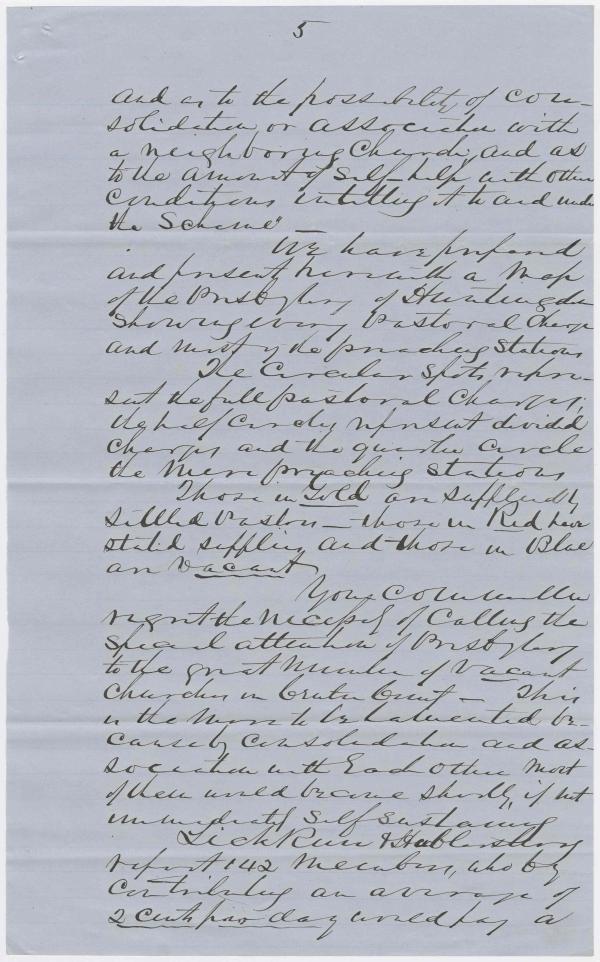 5
and as to the possibility of con-
solidation or association with
a neighboring Church; and as
to the amount of self-help with other
conditions entitling it to aid under
the Scheme"
We have prepared
and present herewith a Map
of the Presbytery of Huntingdon
showing every Pastoral Charge
and most of the preaching Stations
The Circular Spots repre-
sent the full pastoral Charges,
the half Circles represent divided
Charges and the quarter Circle
the mere preaching stations
Those in Gold are supplied by
settled Pastors — those in Red have
stated supplies and those in Blue
are Vacant
Your Committee
regret the necessity of Calling the
special attention of Presbytery
to the great number of Vacant
Churches in Centre County — This
is the more to be lamented be-
cause by consolidation and as-
sociation with Each Other most
of them would become shortly, if not
immediately self sustaining
Lick Run & Hublersburg
report 142 members, who by
contributing an average of
2 cents per day would pay a